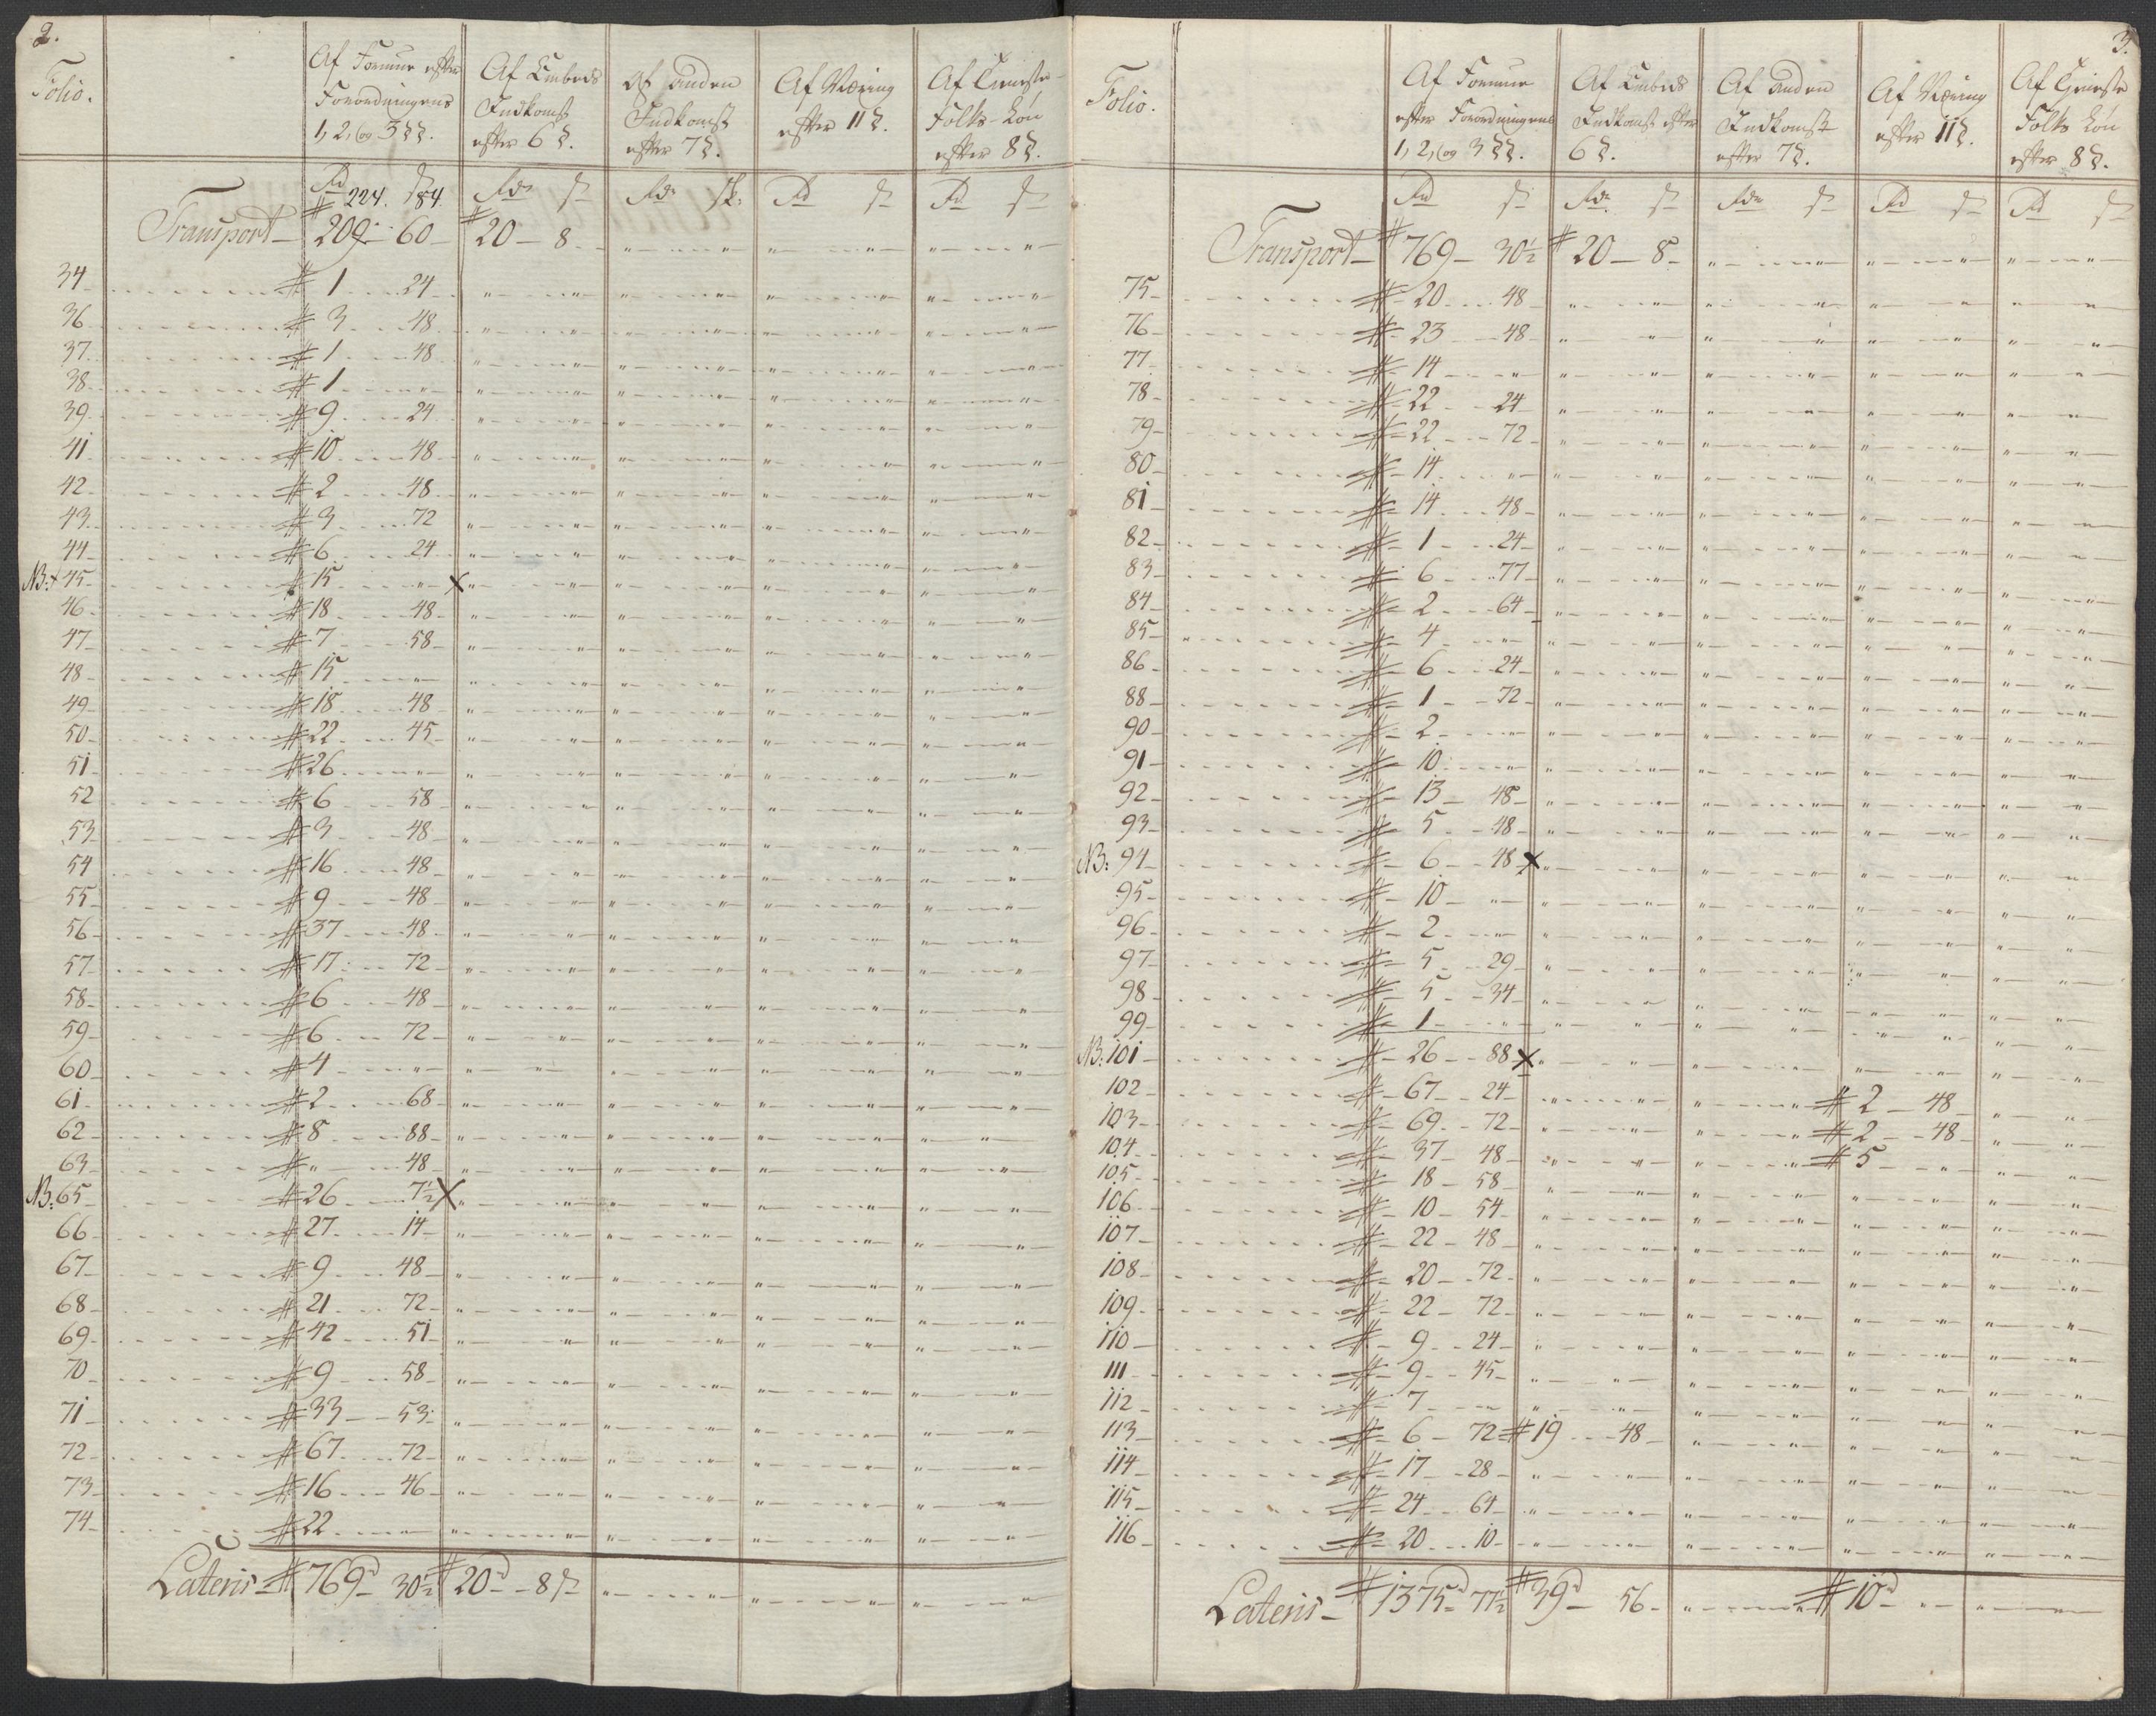 2.
Folio.
Af Formue efter Forordningens 1, 2, og 3 §§.
Af Embeds Indkomst efter 6 §.
Af anden Indkomst efter 7 §.
Af Næring efter 11 §.
Af Tieneste-Folks-Løn efter 8 §.
Rd ß Rdr ß Rdr sk: Rd ß Rd ß
# 224. 84.
Transport # 209 60 # 20 8
34 # 1 24
36 # 3 48
37 # 1 48
38 # 1 "
39 # 9 24
41 # 10 48
42 # 2 48
43 # 3 72
44 # 6 24
NB: + 45 # 15 " x
46 # 18 48
47 # 7 58
48 # 15 "
49 # 18 48
50 # 22 45
51 # 26 "
52 # 6 58
53 # 3 48
54 # 16 48
55 # 9 48
56 # 37 48
57 # 17 72
58 # 6 48
59 # 6 72
60 # 4 "
61 # 2 68
62 # 8 88
63 # " 48
NB: 65 # 26 7½ x
66 # 27 14
67 # 9 48
68 # 21 72
69 # 42 51
70 # 9 58
71 # 33 53
72 # 67 72
73 # 16 46
74 # 22 "
Lateris # 769d 30½ # 20d 8 ß
3.
Folio.
Af Formue efter Forordningens 1, 2, og 3 §§.
Af Embeds Indkomst efter 6 §.
Af anden Indkomst efter 7 §.
Af Næring efter 11 §.
Af Tieneste Folks Løn efter 8 §.
Rd ß Rdr ß Rdr ß Rd ß Rd ß
Transport # 769 30½ # 20 8
75 # 20 48
76 # 23 48
77 # 14 "
78 # 22 24
79 # 22 72
80 # 14 "
81 # 14 48
82 # 1 24
83 # 6 77
84 # 2 64
85 # 4 "
86 # 6 24
88 # 1 72
90 # 2 "
91 # 10 "
92 # 13 48
93 # 5 48
NB: 94 # 6 48 x
95 # 10 "
96 # 2 "
97 # 5 29
98 # 5 34
99 # 1 "
NB: 101 # 26 88 x
102 # 67 24 # 2 48
103 # 69 72 # 2 48
104 # 37 48 # 5 "
105 # 18 58
106 # 10 54
107 # 22 48
108 # 20 72
109 # 22 72
110 # 9 24
111 # 9 45
112 # 7 "
113 # 6 72 # 19 48
114 # 17 28
115 # 24 64
116 # 20 10
Lateris # 1375d 77½ # 39d 56 # 10d "